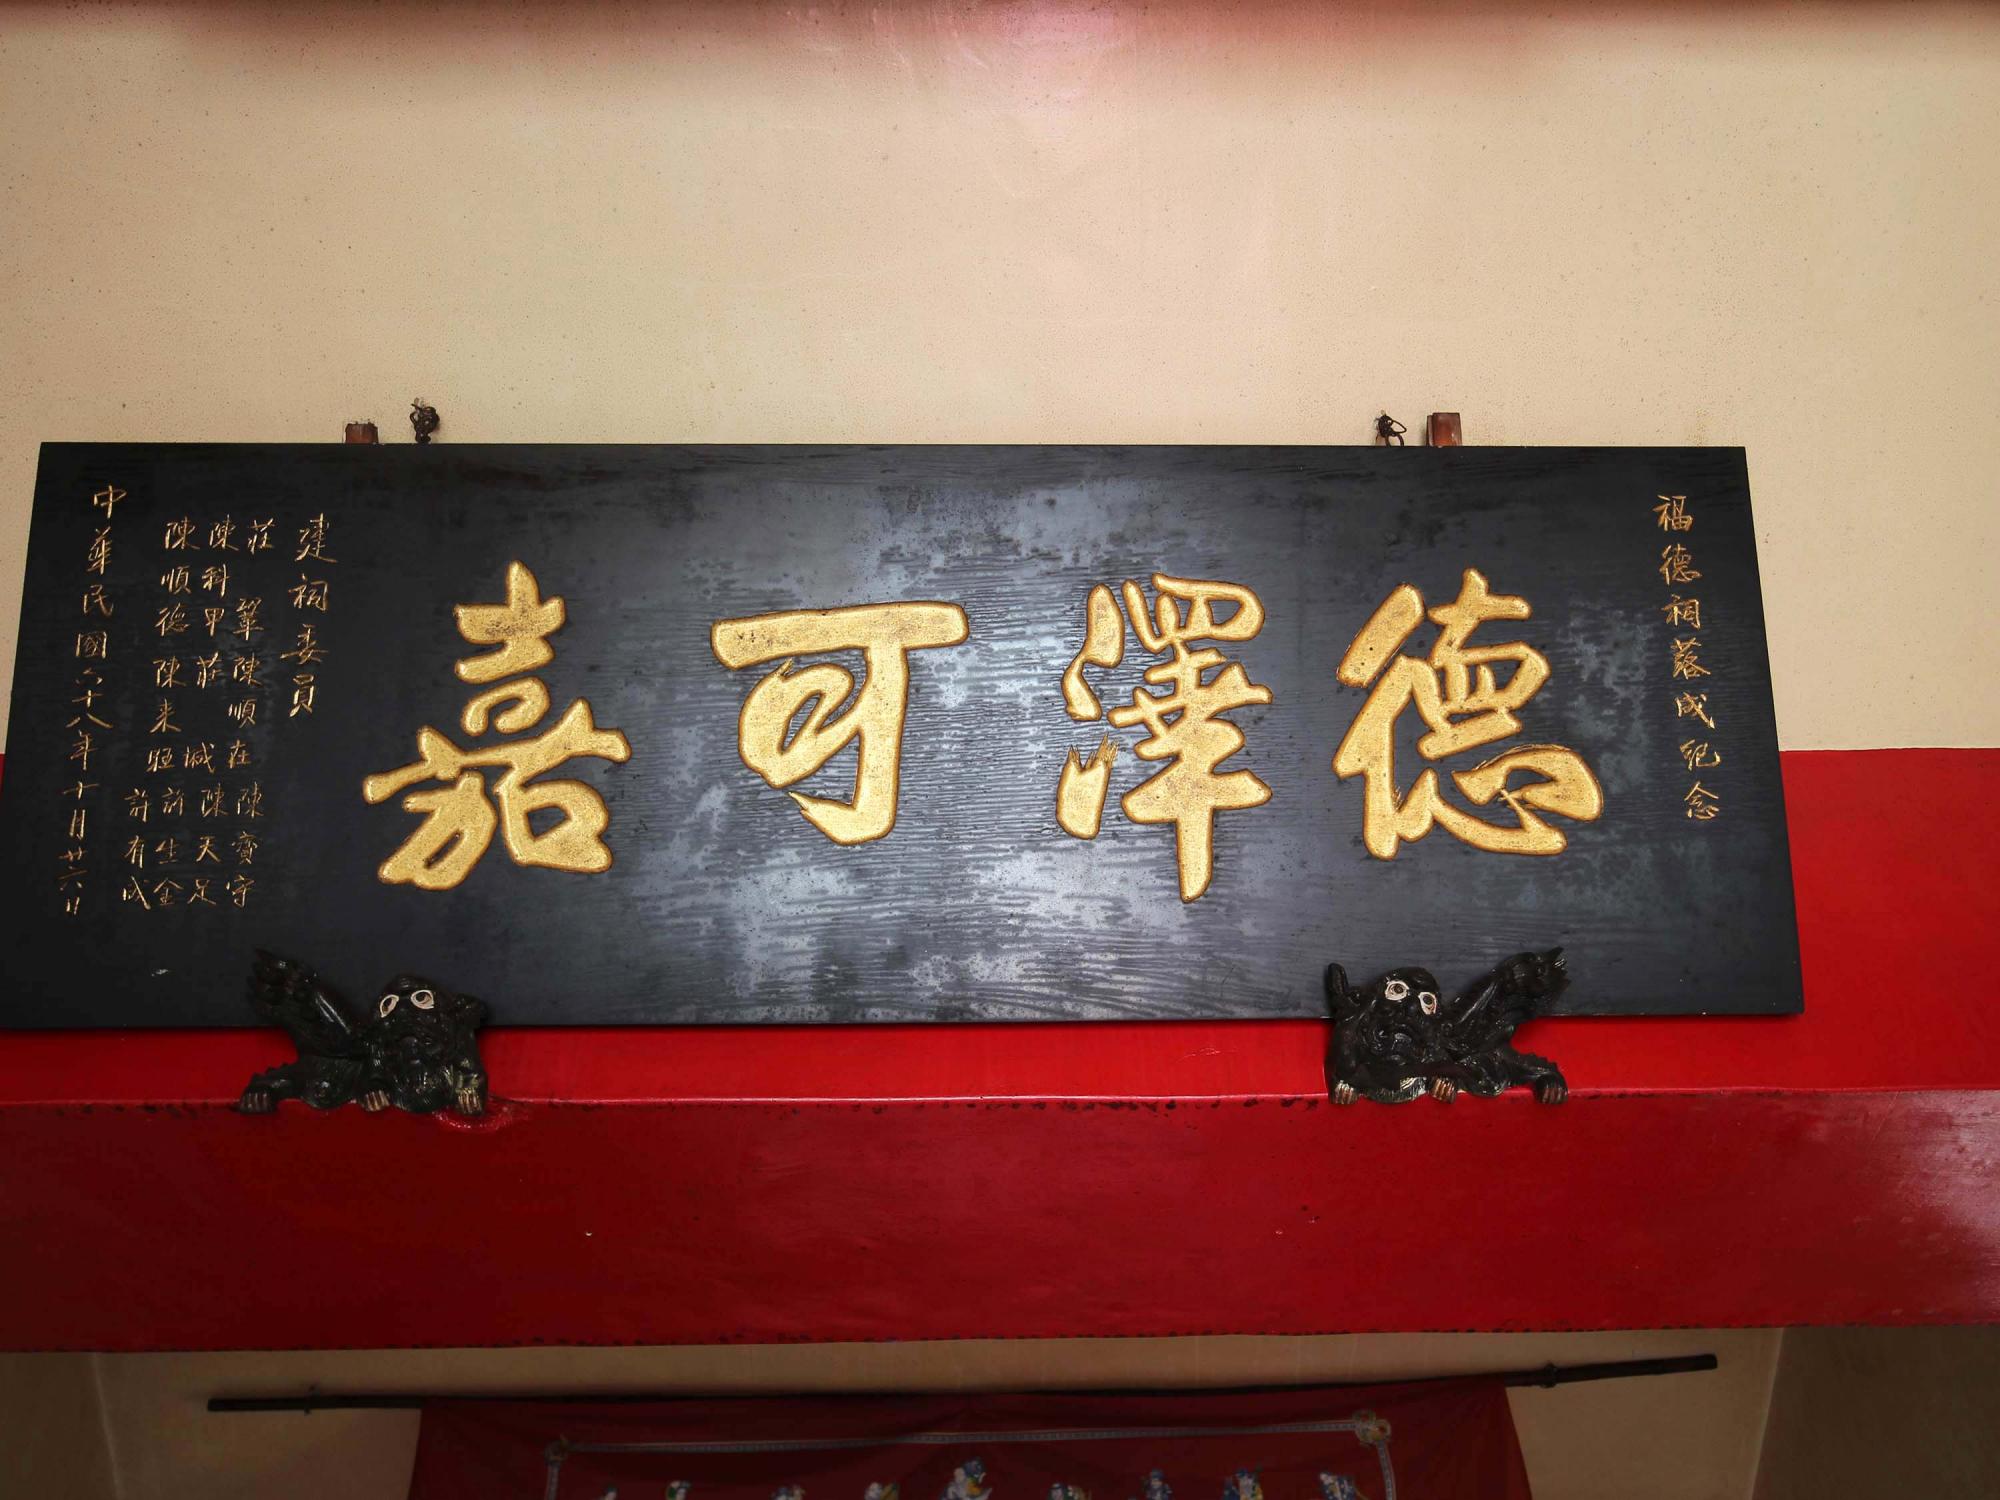 福德祠落成紀念
德澤可嘉
建祠委員
莊 鞏 陳順在 陳寶守
陳科甲 莊 城 陳天足
陳順德 陳來旺 許生金
許有成
中華民國六十八年十月廿六日